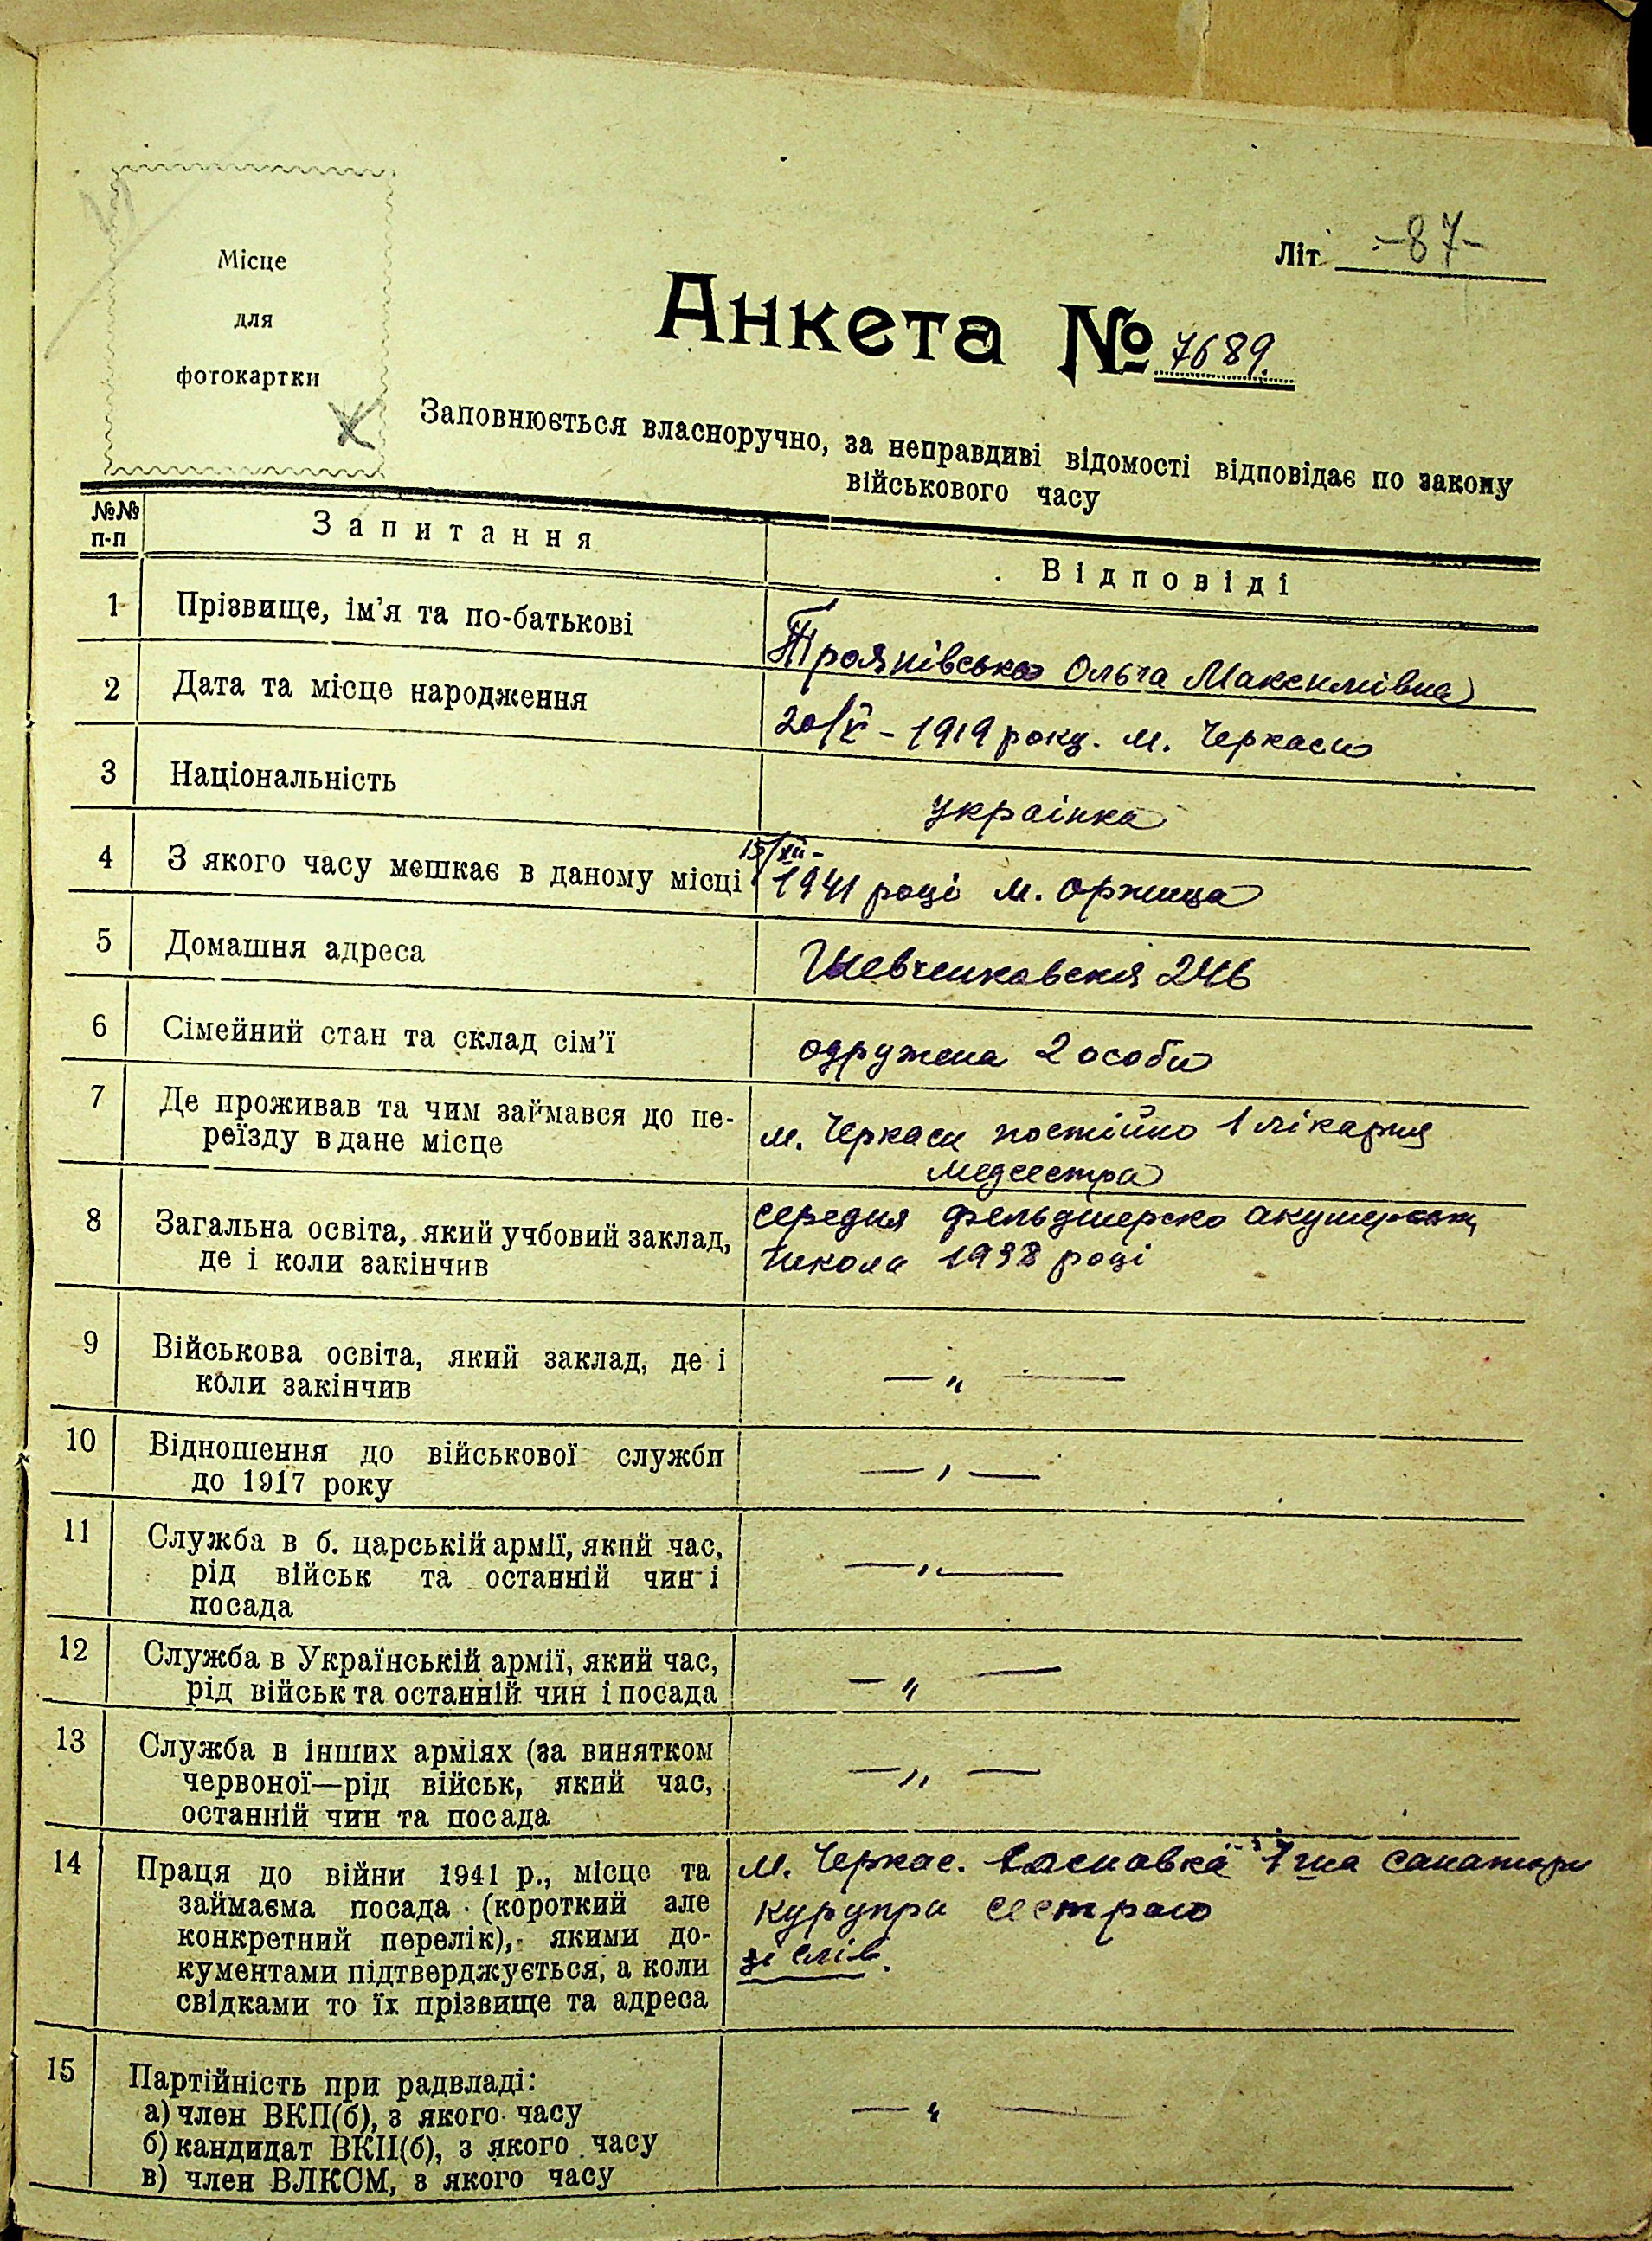 Місце
для
фотокартки
Літ -87-
Анкета № 7689.
Заповнюється власноручно, за неправдиві відомості відповідає по закону
військового часу
№№ п-п
Запитання
Відповіді
1 Прізвище, ім'я та по-батькові
Троянівська Ольга Максимівна
2 Дата та місце народження
20/V - 1919 року. м. Черкаси
3 Національність
українка
4 З якого часу мешкає в даному місці
15/XII-
1941 році м. Оржица
5 Домашня адреса
Шевченковская 246
6 Сімейний стан та склад сім'ї
одружена 2 особи
7 Де проживав та чим займався до пе-
реїзду в дане місце
м. Черкаси постійно 1 лікарня
медсестра
8 Загальна освіта, який учбовий заклад,
де і коли закінчив
середня фельдшерско акушерськ
школа 1938 році
9 Військова освіта, який заклад, де і
коли закінчив
— „ —
10 Відношення до військової служби
до 1917 року
— „ —
11 Служба в б. царській армії, який час,
рід військ та останній чин і
посада
— „ —
12 Служба в Українській армії, який час,
рід військ та останній чин і посада
— „ —
13 Служба в інших арміях (за винятком
червоної—рід військ, який час,
останній чин та посада
— „ —
14 Праця до війни 1941 р., місце та
займаєма посада (короткий але
конкретний перелік), якими до-
кументами підтверджується, а коли
свідками то їх прізвище та адреса
м. Черкас. Сосновка санатори
сестрою
зі слів.
15 Партійність при радвладі:
а) член ВКП(б), з якого часу
б) кандидат ВКП(б), з якого часу
в) член ВЛКСМ, з якого часу
— „ —